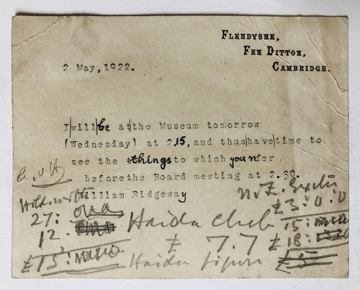 FLENDYSHE,
FEN DITTON,
CAMBRIDGE.
2 May, 1922.
I will be at the Museum tomorrow
(Wednesday) at 2.15, and thus have time to
see the things to which you refer
before the Board meeting at 2.30.
William Ridgeway
27:
12.
£15:
Haida Club
£ 7.7
Haida figure
N.Z.
£3:0.0
15:
£18:
£5